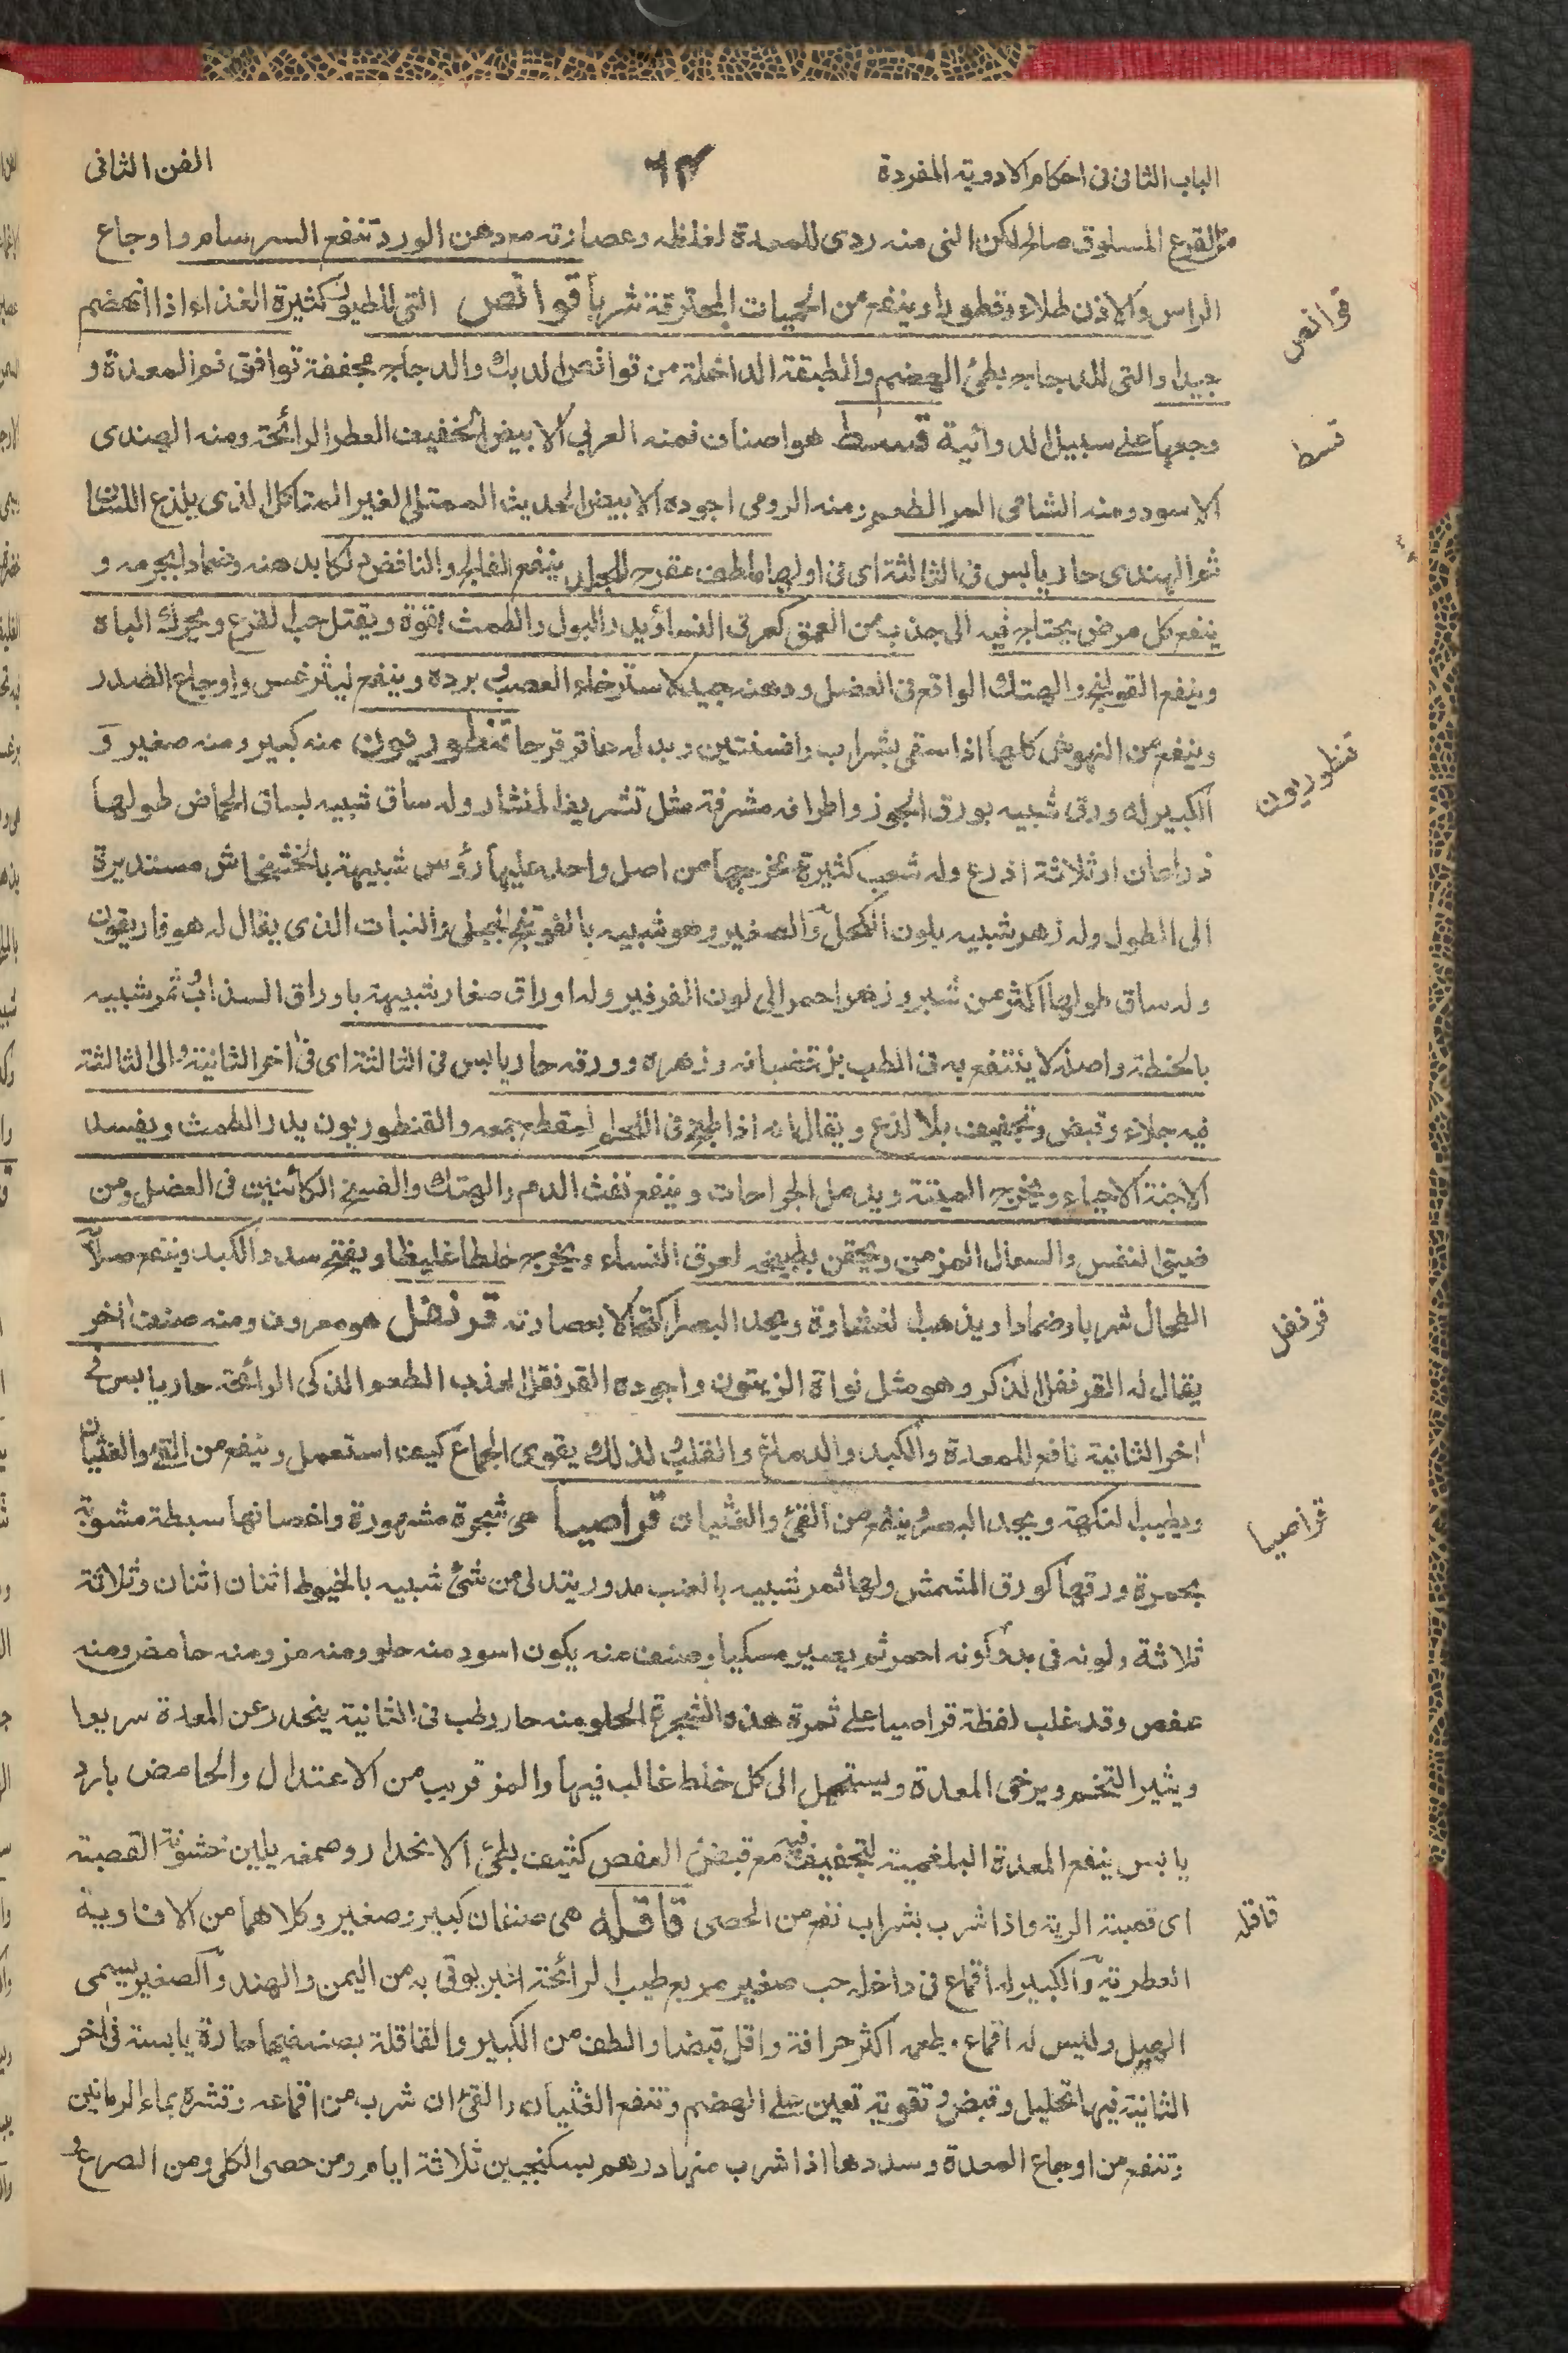 الباب الثانى فى احكام الادوية المفردة
٦٣
الفن الثانى
القرع المسلوق صالح لكن النى منه ردى للمعدة لغلظه وعصارته مع دهن الورد تنفع السرسام واوجاع
الراس والاذن طلاء وقطورا وينفع من الحميات المحترقة شربا قوانص التى للطيور كثيرة الغذاء اذا انهضم
قوانص
جيدا والتى للدجاج بطئ الهضم والطبقة الداخلة من قوانص الديك والدجاج مجففة توافق فم المعدة و
وجعها على سبيل الدوائية قسط هو اصناف فمنه العربي الابيض الخفيف العطر الرائحة ومنه الهندى
قسط
الاسود ومنه الشامى المر الطعم ومنه الرومى اجوده الابيض الحديث الممتلئ الغير المتاكل الذى يلذع اللسان
ثم الهندى حار يابس فى الثالثة اى فى اولها ملطف مقرح للجلد ينفع الفالج والنافض دلكا بدهنه وضمادا بجرمه و
ينفع كل مرض يحتاج فيه الى جذب من العمق كعرق النسا ويدر البول والطمث بقوة ويقتل حب القرع ويحرك الباه
وينفع القولنج والهتك الواقع فى العضل ودهنه جيد لاسترخاء العصب وبرده وينفع ليثرغس واوجاع الصدر
وينفع من النهوش كلها اذا سقى بشراب وافسنتين وبدله عاقر قرحا قنطوريون منه كبير ومنه صغير و
قنطوريون
الكبير له ورق شبيه بورق الجوز واطرافه مشرفة مثل تشريف المنشار وله ساق شبيه بساق الحماض طولها
ذراعان او ثلاثة اذرع وله شعب كثيرة مخرجها من اصل واحد عليها رؤس شبيهة بالخشخاش مستديرة
الى الطول وله زهر شبيه بلون الكحل والصغير وهو شبيه بالفوتنج الجبلى والنبات الذى يقال له هوفاريقون
وله ساق طولها اكثر من شبر وزهر احمر الى لون الفرفير وله اوراق صغار شبيهة باوراق السذاب وثمر شبيه
بالحنطة واصله لا ينتفع به فى الطب بل قضبانه وزهره وورقه حار يابس فى الثالثة اى فى اخر الثانية والى الثالثة
فيه جلاء وقبض وتجفيف بلا لذع ويقال انه اذا طبخ فى اللحم المقطع جمعه والقنطوريون يدر الطمث ويفسد
الاجنة الاحياء ويخرج الميتة ويدمل الجراحات وينفع نفث الدم والهتك والفسخ الكائنين فى العضل ومن
ضيق النفس والسعال المزمن ويحقن بطبيخه لعرق النساء ويخرج خلطا غليظا ويفتح سدد الكبد وينفع صلابة
الطحال شربا وضمادا ويذهب الغشاوة ويحد البصر اكتحالا بعصارته قرنفل هو معروف ومنه صنف اخر
قرنفل
يقال له القرنفل الذكر وهو مثل نواة الزيتون واجوده القرنفل العذب الطعم الذكى الرائحة حار يابس فى
اخر الثانية نافع للمعدة والكبد والدماغ والقلب ولذلك يقوى الجماع كيف استعمل وينفع من القئ والغثيان
ويطيب النكهة ويحد البصر وينفع من القئ والغثيان قراصيا هى شجرة مشهورة واغصانها سبطة مشوبة
قراصيا
بحمرة ورقها كورق المشمش ولها ثمر شبيه بالعنب مدور يتدلى من شئ شبيه بالخيوط اثنان اثنان وثلاثة
ثلاثة ولونه فى بدو كونه احمر ثم يصير مسكيا وصنف منه يكون اسود منه حلو ومنه مز ومنه حامض ومنه
عفص وقد غلب لفظة قراصيا على ثمرة هذه الشجرة الحلو منه حار رطب فى الثانية ينحدر عن المعدة سريعا
ويثير التخم ويرخى المعدة ويستحيل الى كل خلط غالب فيها والمز قريب من الاعتدال والحامض بارد
يابس ينفع المعدة البلغمية لتجفيف فيه مع قبض العفص كثيف بطئ الانحدار وصمغه يلين خشونة القصبة
اى قصبة الرية واذا شرب بشراب نفع من الحصى قاقله هى صنفان كبير وصغير وكلاهما من الافاوية
قاقله
العطرية والكبير له اقماع فى داخله حب صغير مربع طيب الرائحة اغبر يوتى به من اليمن والهند والصغير يسمى
الهيل وليس له اقماع وطعمه اكثر حرافة واقل قبضا والطف من الكبير والقاقلة بصنفيها حارة يابسة فى اخر
الثانية فيها تحليل وقبض وتقوية تعين على الهضم وتنفع الغثيان والقئ ان شرب من اقماعه وقشره بماء الرمانين
وتنفع من اوجاع المعدة وسددها اذا شرب منها درهم بسكنجبين ثلاثة ايام ومن حصى الكلى ومن الصرع و